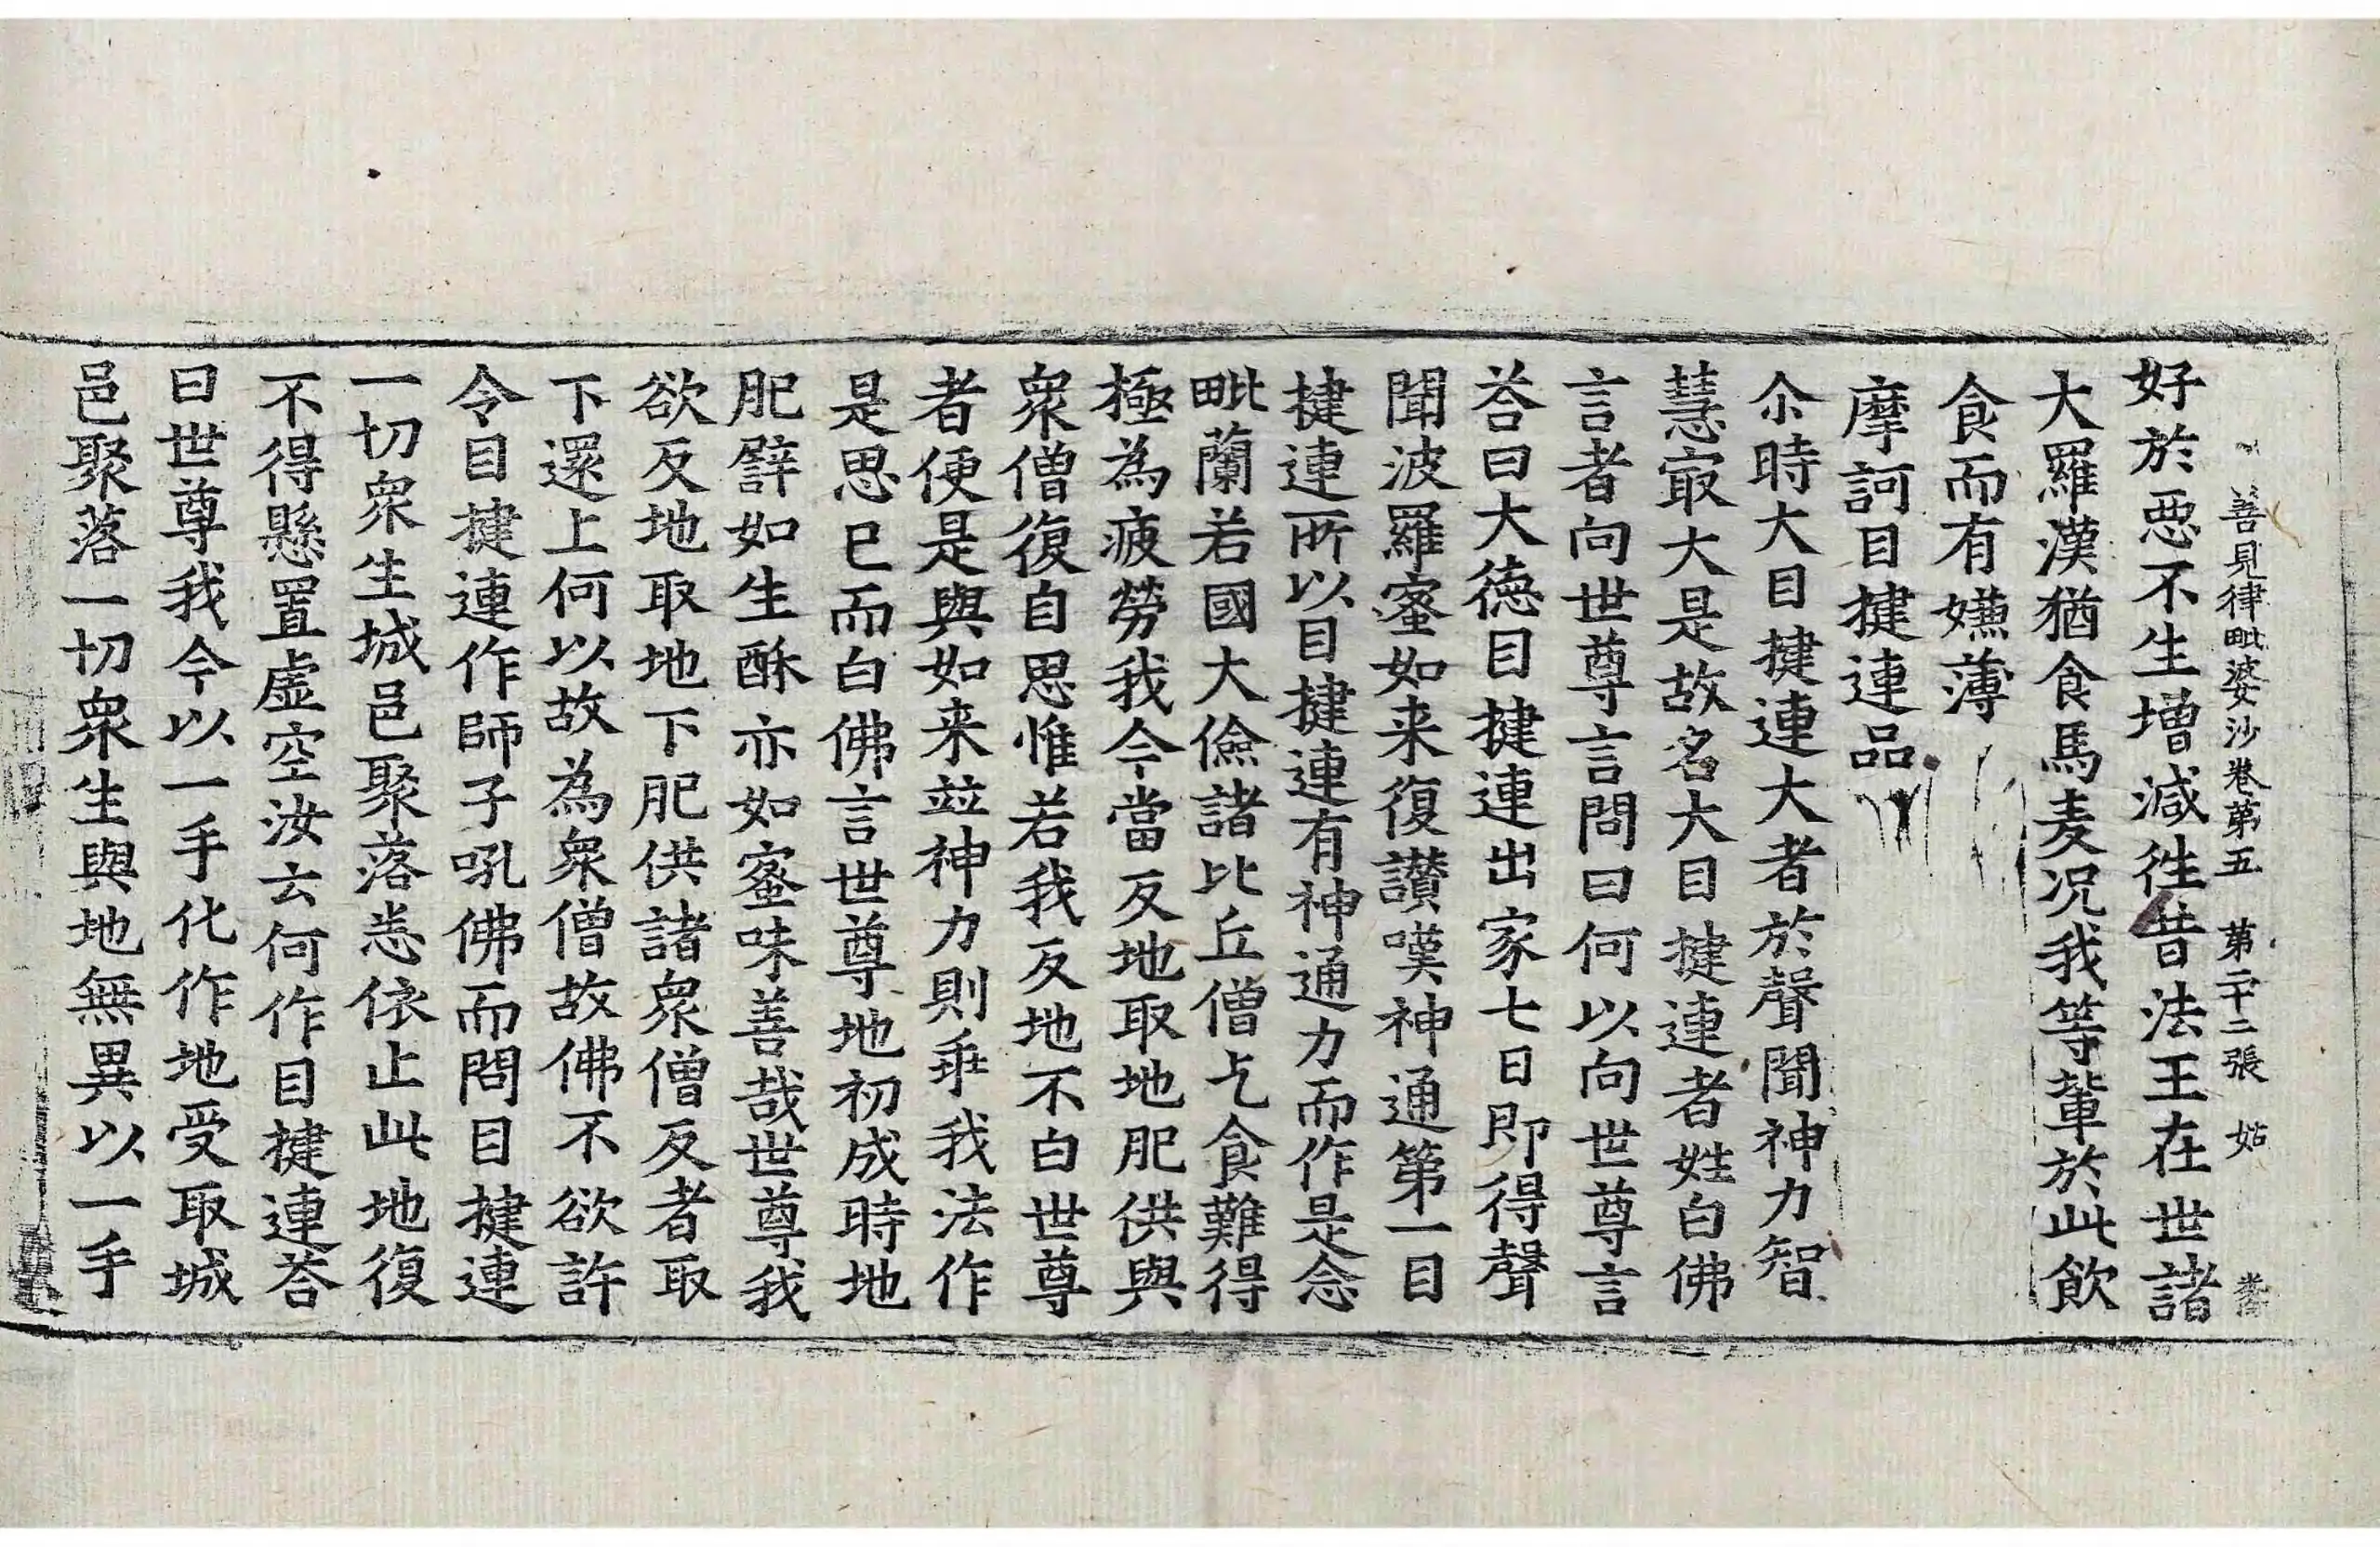 善見律毗婆沙卷第五 第二十二張 姑
好於惡不生增減徃昔法王在世諸
大羅漢猶食馬麦况我等輩於此飲
食而有嫌薄
摩訶目揵連品
尒時大目揵連大者於聲聞神力智
慧㝡大是故名大目揵連者姓白佛
言者向世尊言問曰何以向世尊言
荅曰大德目揵連出家七日即得聲
聞波羅蜜如来復讃嘆神通第一目
揵連所以目揵連有神通力而作是念
毗蘭若國大儉諸比丘僧乞食難得
極為疲勞我今當反地取地肥供與
衆僧復自思惟若我反地不白世尊
者便是與如来並神力則乖我法作
是思已而白佛言世尊地初成時地
肥譬如生酥亦如蜜味善哉世尊我
欲反地取地下肥供諸衆僧反者取
下還上何以故為衆僧故佛不欲許
令目揵連作師子吼佛而問目揵連
一切衆生城邑聚落恙依止此地復
不得懸置虚空汝云何作目揵連荅
曰世尊我今以一手化作地受取城
邑聚落一切衆生與地無異以一手